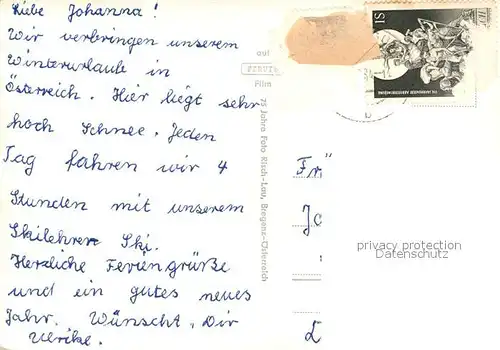 Liebe Johanna!
Wir verbringen unserem
Winterurlaub in
Österreich. Hier liegt sehr
hoch Schnee. Jeden
Tag fahren wir 4
Stunden mit unserem
Skilehrer Ski.
Herzliche Feriengrüße
und ein gutes neues
Jahr. Wünscht Dir
Ulrike.
auf
Film
75 Jahre Foto Risch-Lau, Bregenz-Österreich
Fr
privacy protection
Datenschutz